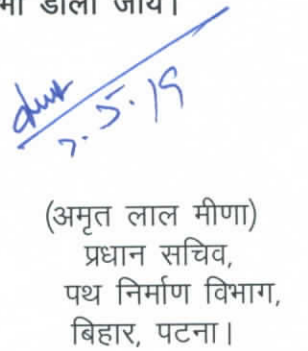 डाला जाय।
7.5.19
(अमृत लाल मीणा)
प्रधान सचिव,
पथ निर्माण विभाग,
बिहार, पटना।